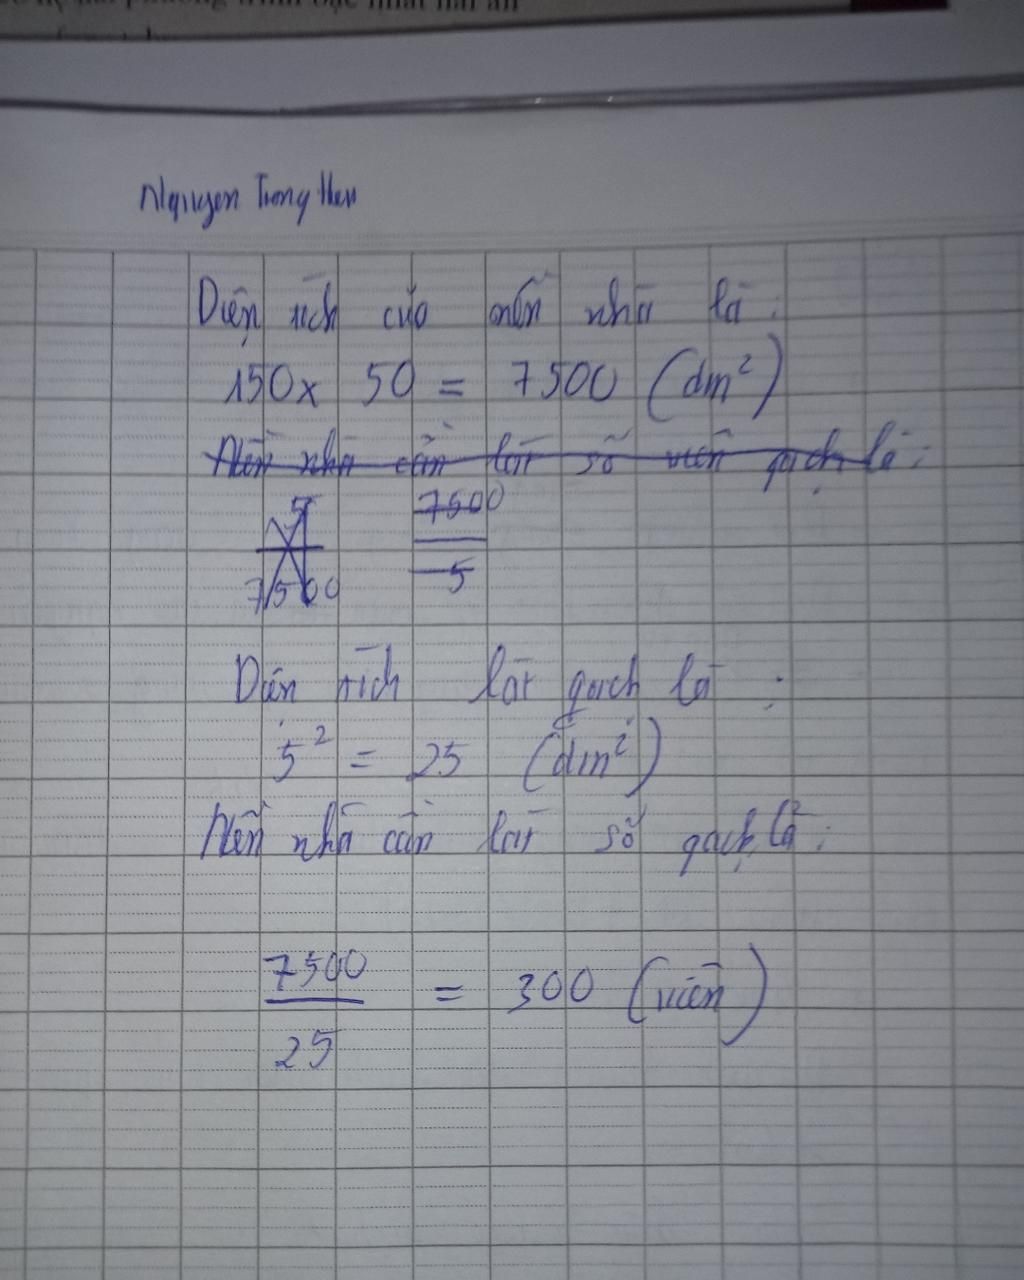 phương trình bậc nhất hai ẩn
Nguyen Trong
Diện tích của nền nhà là :
150 x 50 = 7500 (dm²)
Nền nhà cần lát số viên gạch là :
5 7500
7500 5
Diện tích lát gạch là :
5² = 25 (dm²)
Nền nhà cần lát số gạch là :
7500
25
= 300 (viên)